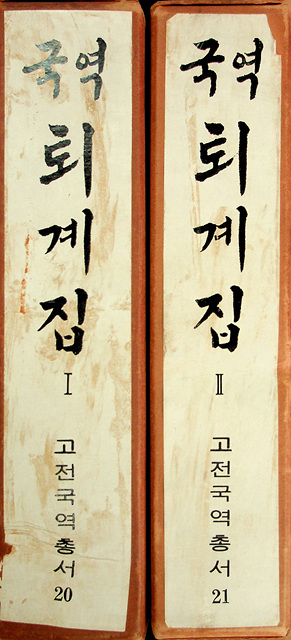 국역
퇴계집
I
고전국역총서
20
국역
퇴계집
II
고전국역총서
21